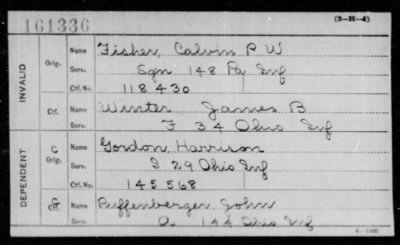 161336
(3-H-4)
INVALID
Orig. Name Fisher, Calvin P W
Serv. Sgn 148 Pa Inf
Ctf. No. 118430
Ctf. Name Winter James B
Serv. F 34 Ohio Inf
DEPENDENT
C Orig. Name Gordon, Harrison
Serv. I 29 Ohio Inf
Ctf. No. 145568
Name Puffenberger, John
A 144 Ohio Inf